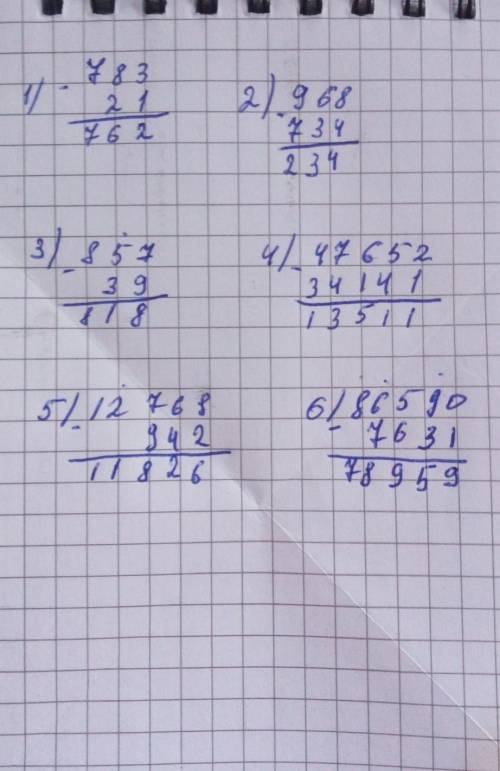 1) - 783
21
762
2) - 968
734
234
3) - 857
39
818
4) - 47652
34141
13511
5) - 12768
942
11826
6) - 86590
7631
78959